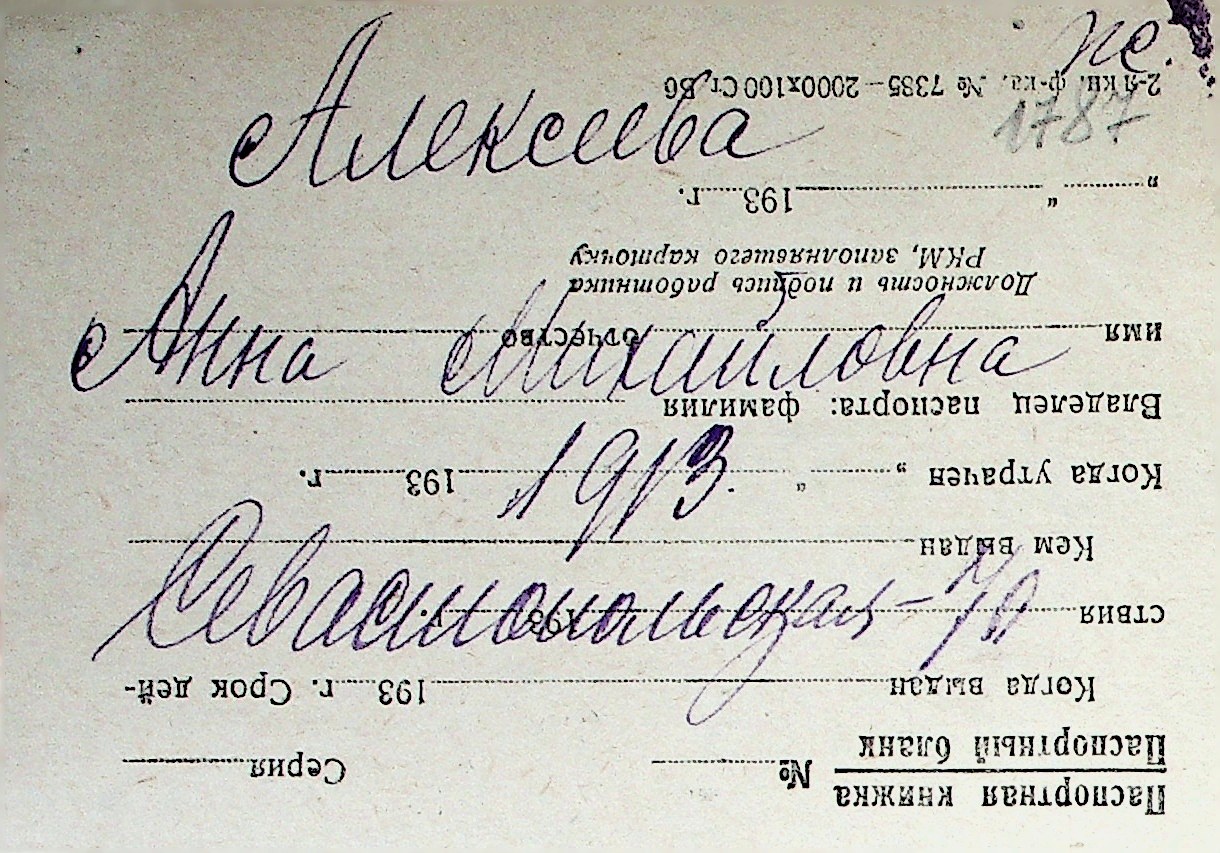 же.
1787
Алексеева
Анна Михайловна
1913
Севастопольская – 70
Паспортная книжка
Паспортный бланк
№ Серия
Когда выдан 193 г. Срок дей-
ствия 193 г.
Кем выдан
Когда утрачен „ “ 193 г.
Владелец паспорта: фамилия
имя отчество
Должность и подпись работника
РКМ, заполнявшего карточку
„ “ 193 г.
2-я кн. ф-ка. № 7385—2000х100 Ст. Б6